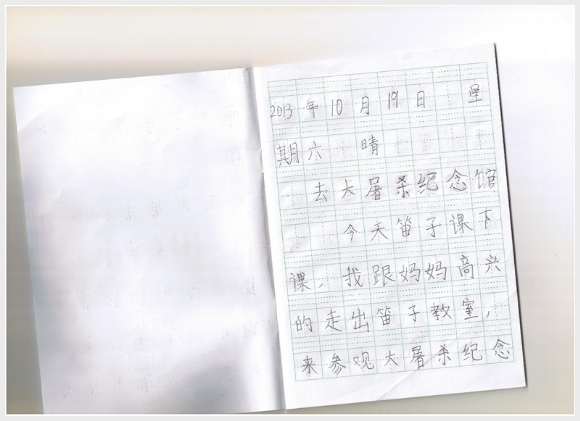 2013年10月19日 星
期六 晴
去大屠杀纪念馆
今天笛子课下
课，我跟妈妈高兴
的走出笛子教室，
来参观大屠杀纪念